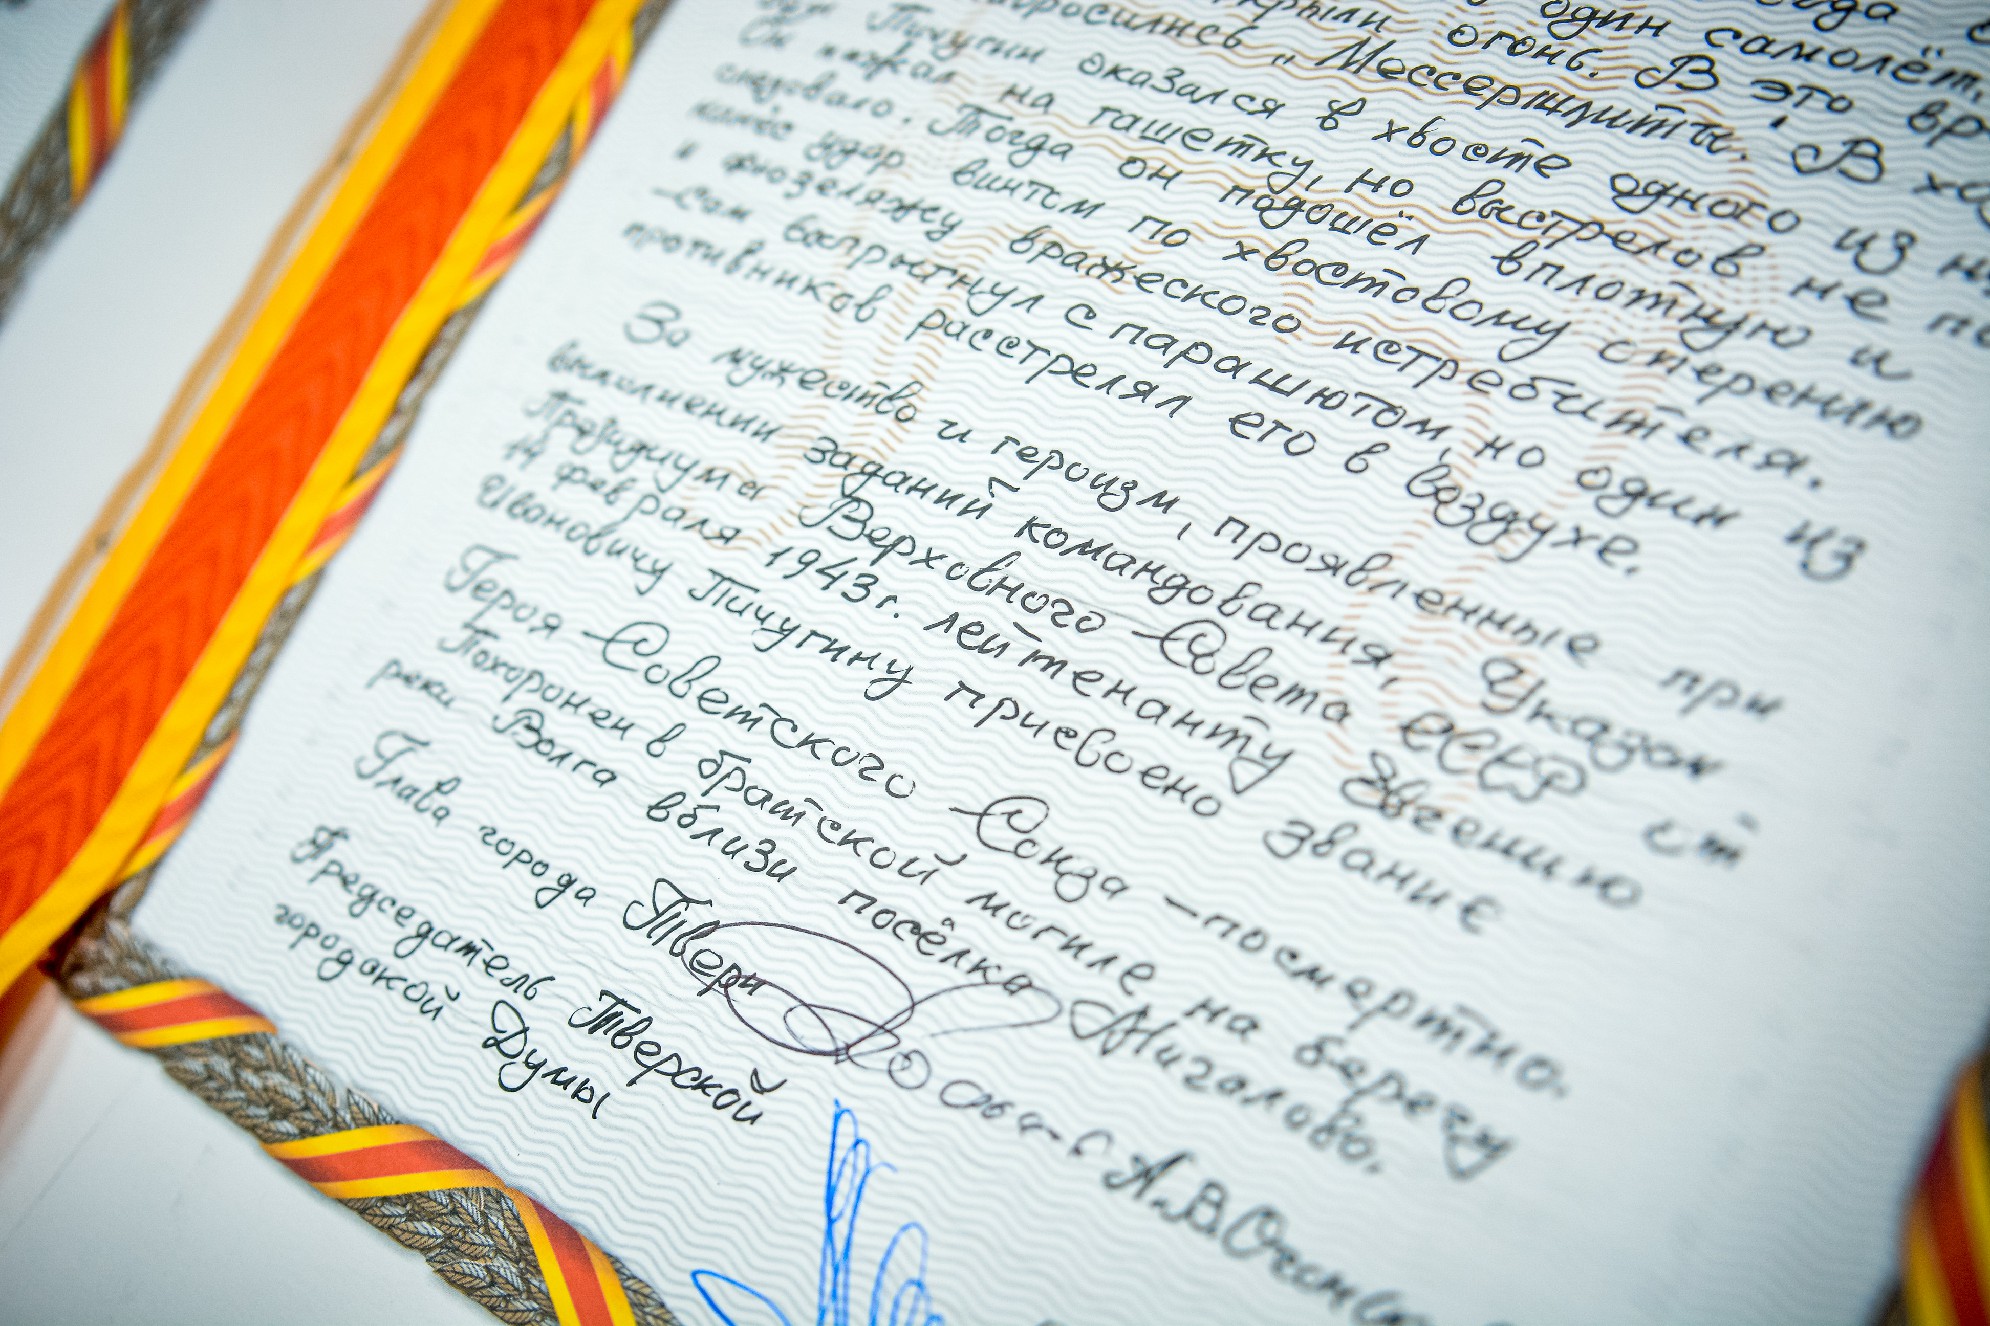 один самолёт,
открыли огонь. В это
набросились „Мессершмитты". В
Пичугин оказался в хвосте одного из
Он нажал на гашетку, но выстрелов не
следовало. Тогда он подошёл вплотную и
нанёс удар винтом по хвостовому оперению
и фюзеляжу вражеского истребителя.
Сам выпрыгнул с парашютом, но один из
противников расстрелял его в воздухе.
За мужество и героизм, проявленные при
выполнении заданий командования, Указом
Президиума Верховного Совета СССР от
14 февраля 1943г. лейтенанту Евгению
Ивановичу Пичугину присвоено звание
Героя Советского Союза – посмертно.
Похоронен в братской могиле на берегу
реки Волга вблизи посёлка Мигалово.
Глава города Твери
А.В.
Председатель Тверской
городской Думы